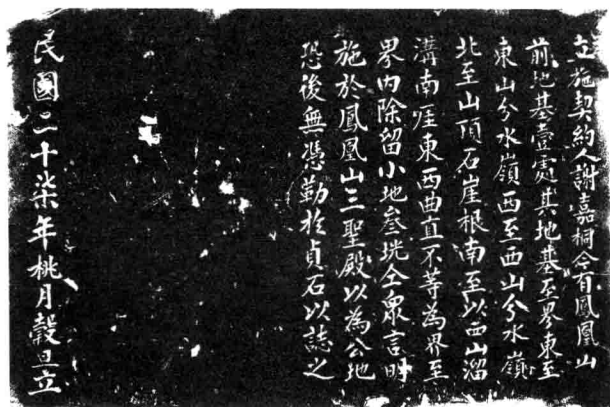 立施契約人謝嘉桐今有鳳凰山
前地基壹處其地基至界東至
東山分水嶺西至西山分水嶺
北至山頂石崖根南至以西山溜
溝南崖東西曲直不等為界至
界內除留小地叁垙仝衆言明
施於鳳凰山三聖殿以為公地
恐後無憑勒於貞石以誌之
民國二十柒年桃月穀旦立